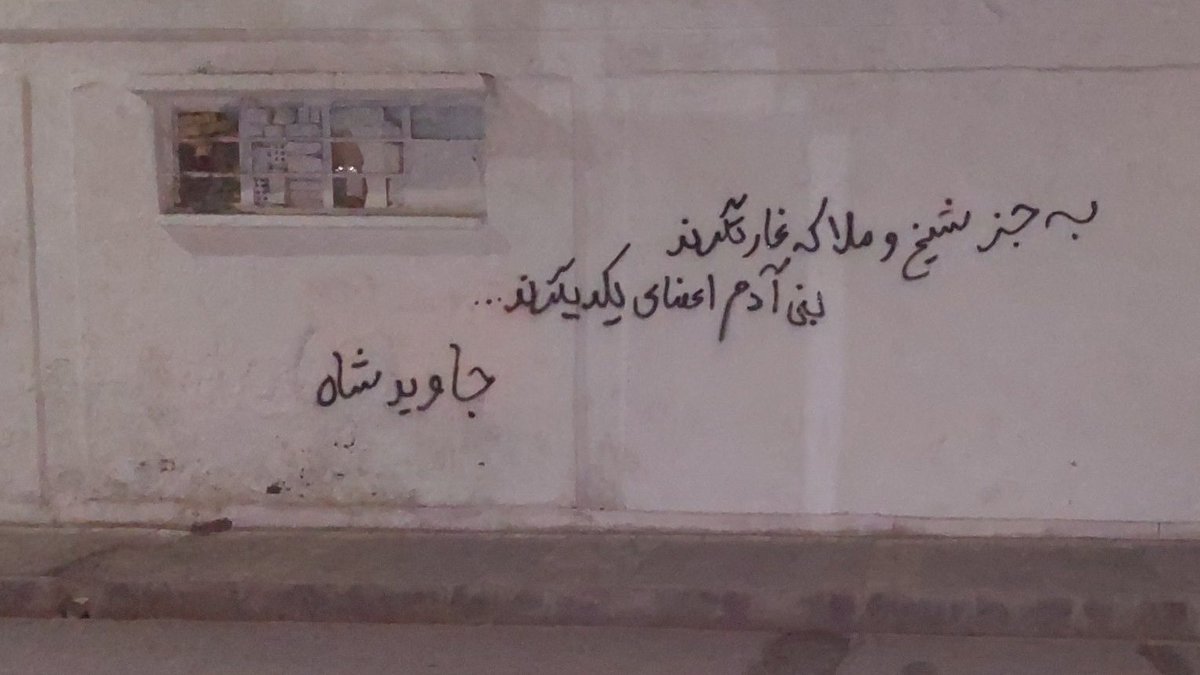 به جز شیخ و ملا که غارتگرند
بنی آدم اعضای یکدیگرند...
جاوید شاه